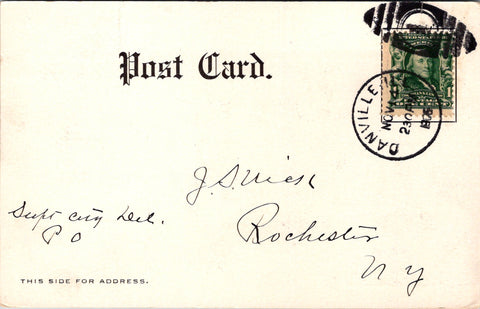 Post Card.
DANVILLE
NOV
230 PM
1905
J.S. Mick
Supt City Del.
P O
Rochester
N y
THIS SIDE FOR ADDRESS.